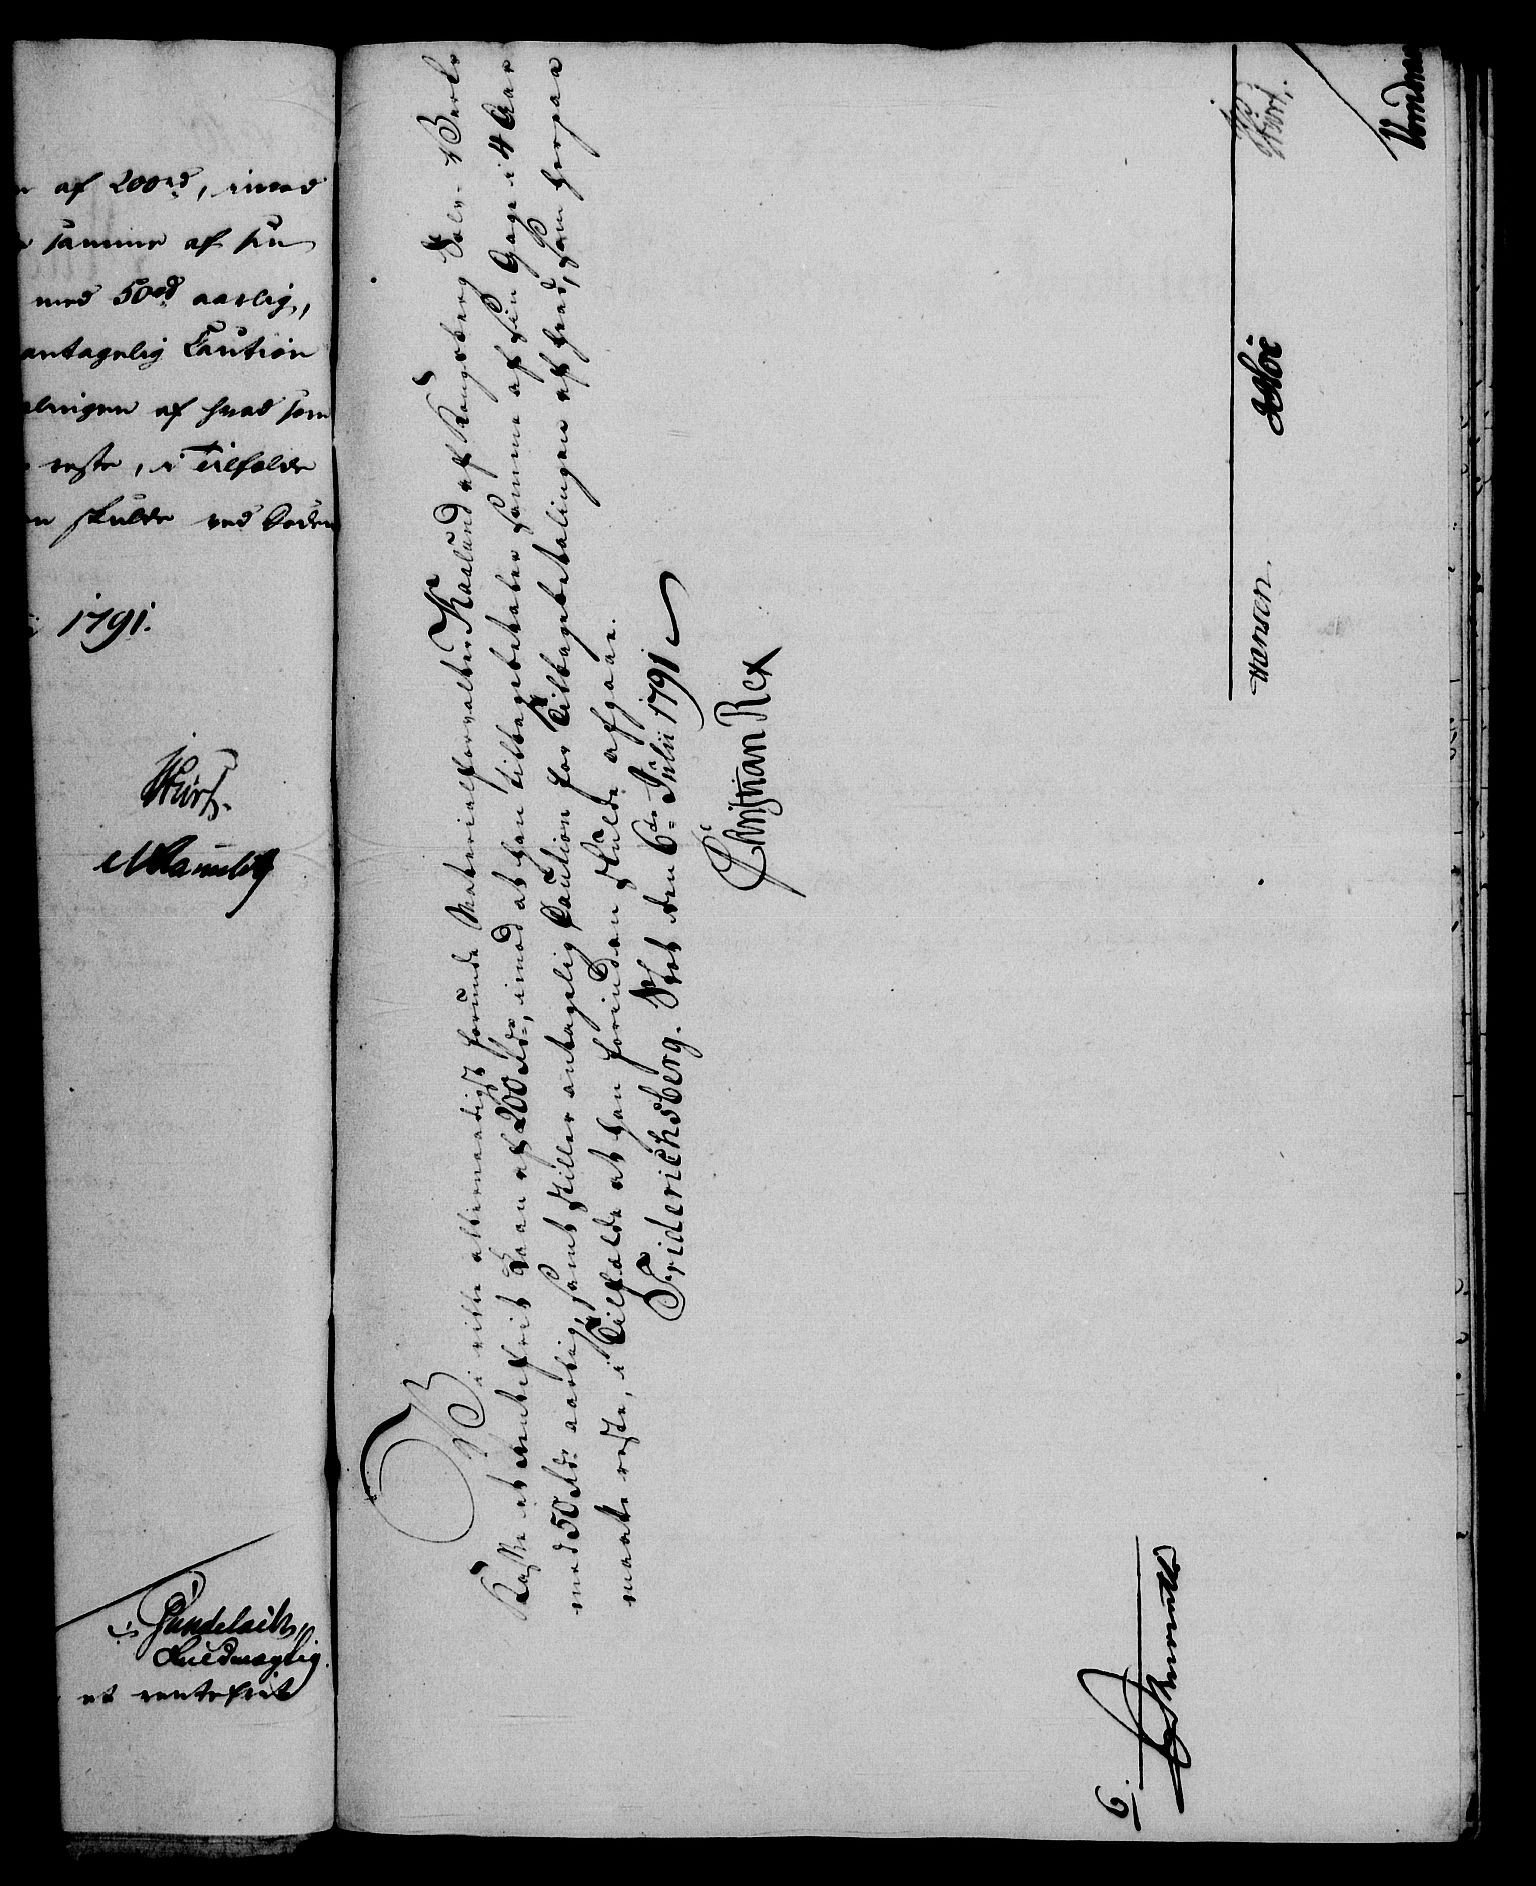 af 200rd, imod
samme af sin
med 50rd aarlig,
antagelig Caution
af hvad som
reste, i Tilfælde
skulde ved Døden
1791.
Wurt.

Gundelach,
et rentefrit
Vi ville allernaadigst forunde Materialforvalter Kaalund af Kongsberg Sølv-Berk
Kasse et Rentefrit Laan af 200 Rdr, imod at han tilbagebetaler samme af sin Gage i 4 Aar
med 50 Rdr aarlig, samt stiller antagelig Caution for Tilbagebetalingen af hvad, som herpaa
maate reste, i Tilfælde at han forinden skulde afgaae.
Friderichsberg Slot den 6de Julii 1791
Christian Rex
6.
Hansen.
Wurt.